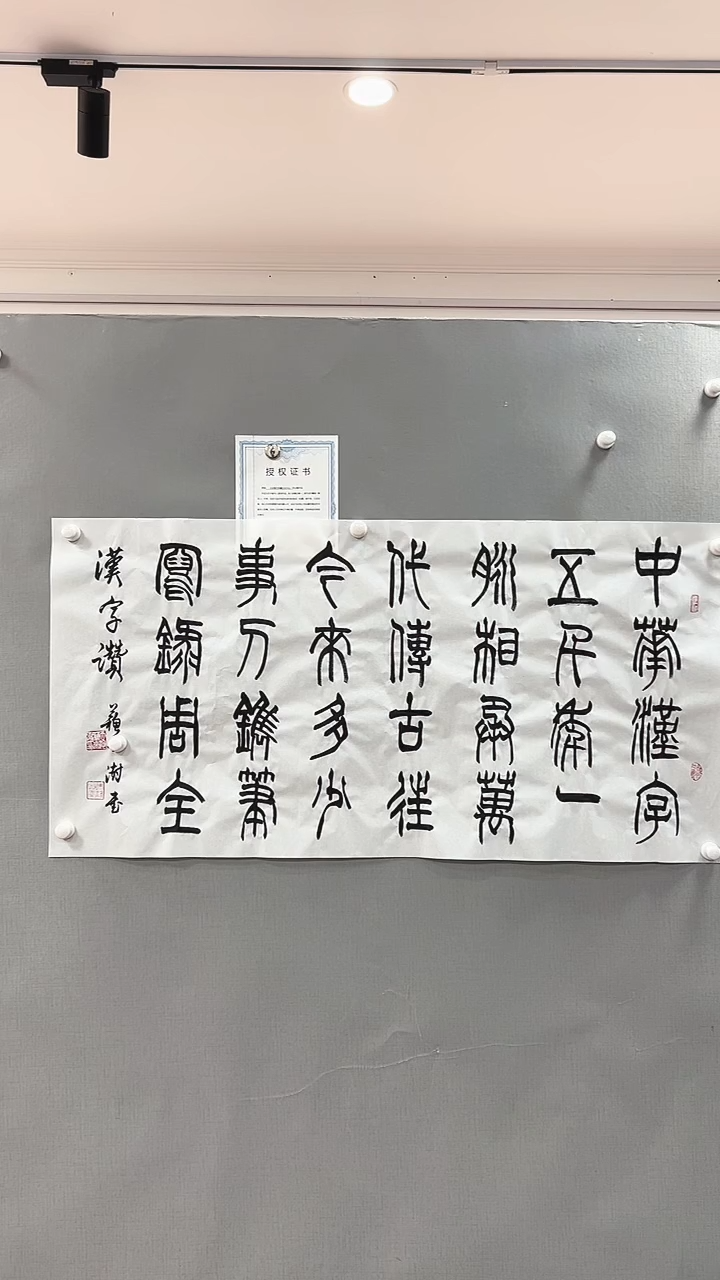 授权证书
中華漢字
五千年一
脈相承萬
代傳古往
今來多少
事刀鐫筆
寫錄周全
漢字讚